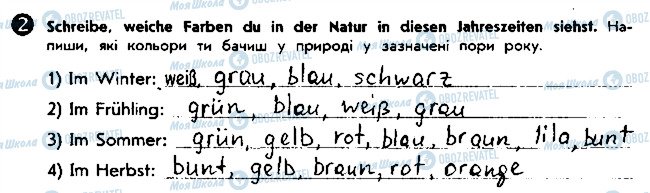 2 Schreibe, weiche Farben du in der Natur in diesen Jahreszeiten siehst. На-
пиши, які кольори ти бачиш у природі у зазначені пори року.
1) Im Winter: weiß, grau, blau, schwarz
2) Im Frühling: grün, blau, weiß, grau
3) Im Sommer: grün, gelb, rot, blau, braun, lila, bunt
4) Im Herbst: bunt, gelb, braun, rot, orange